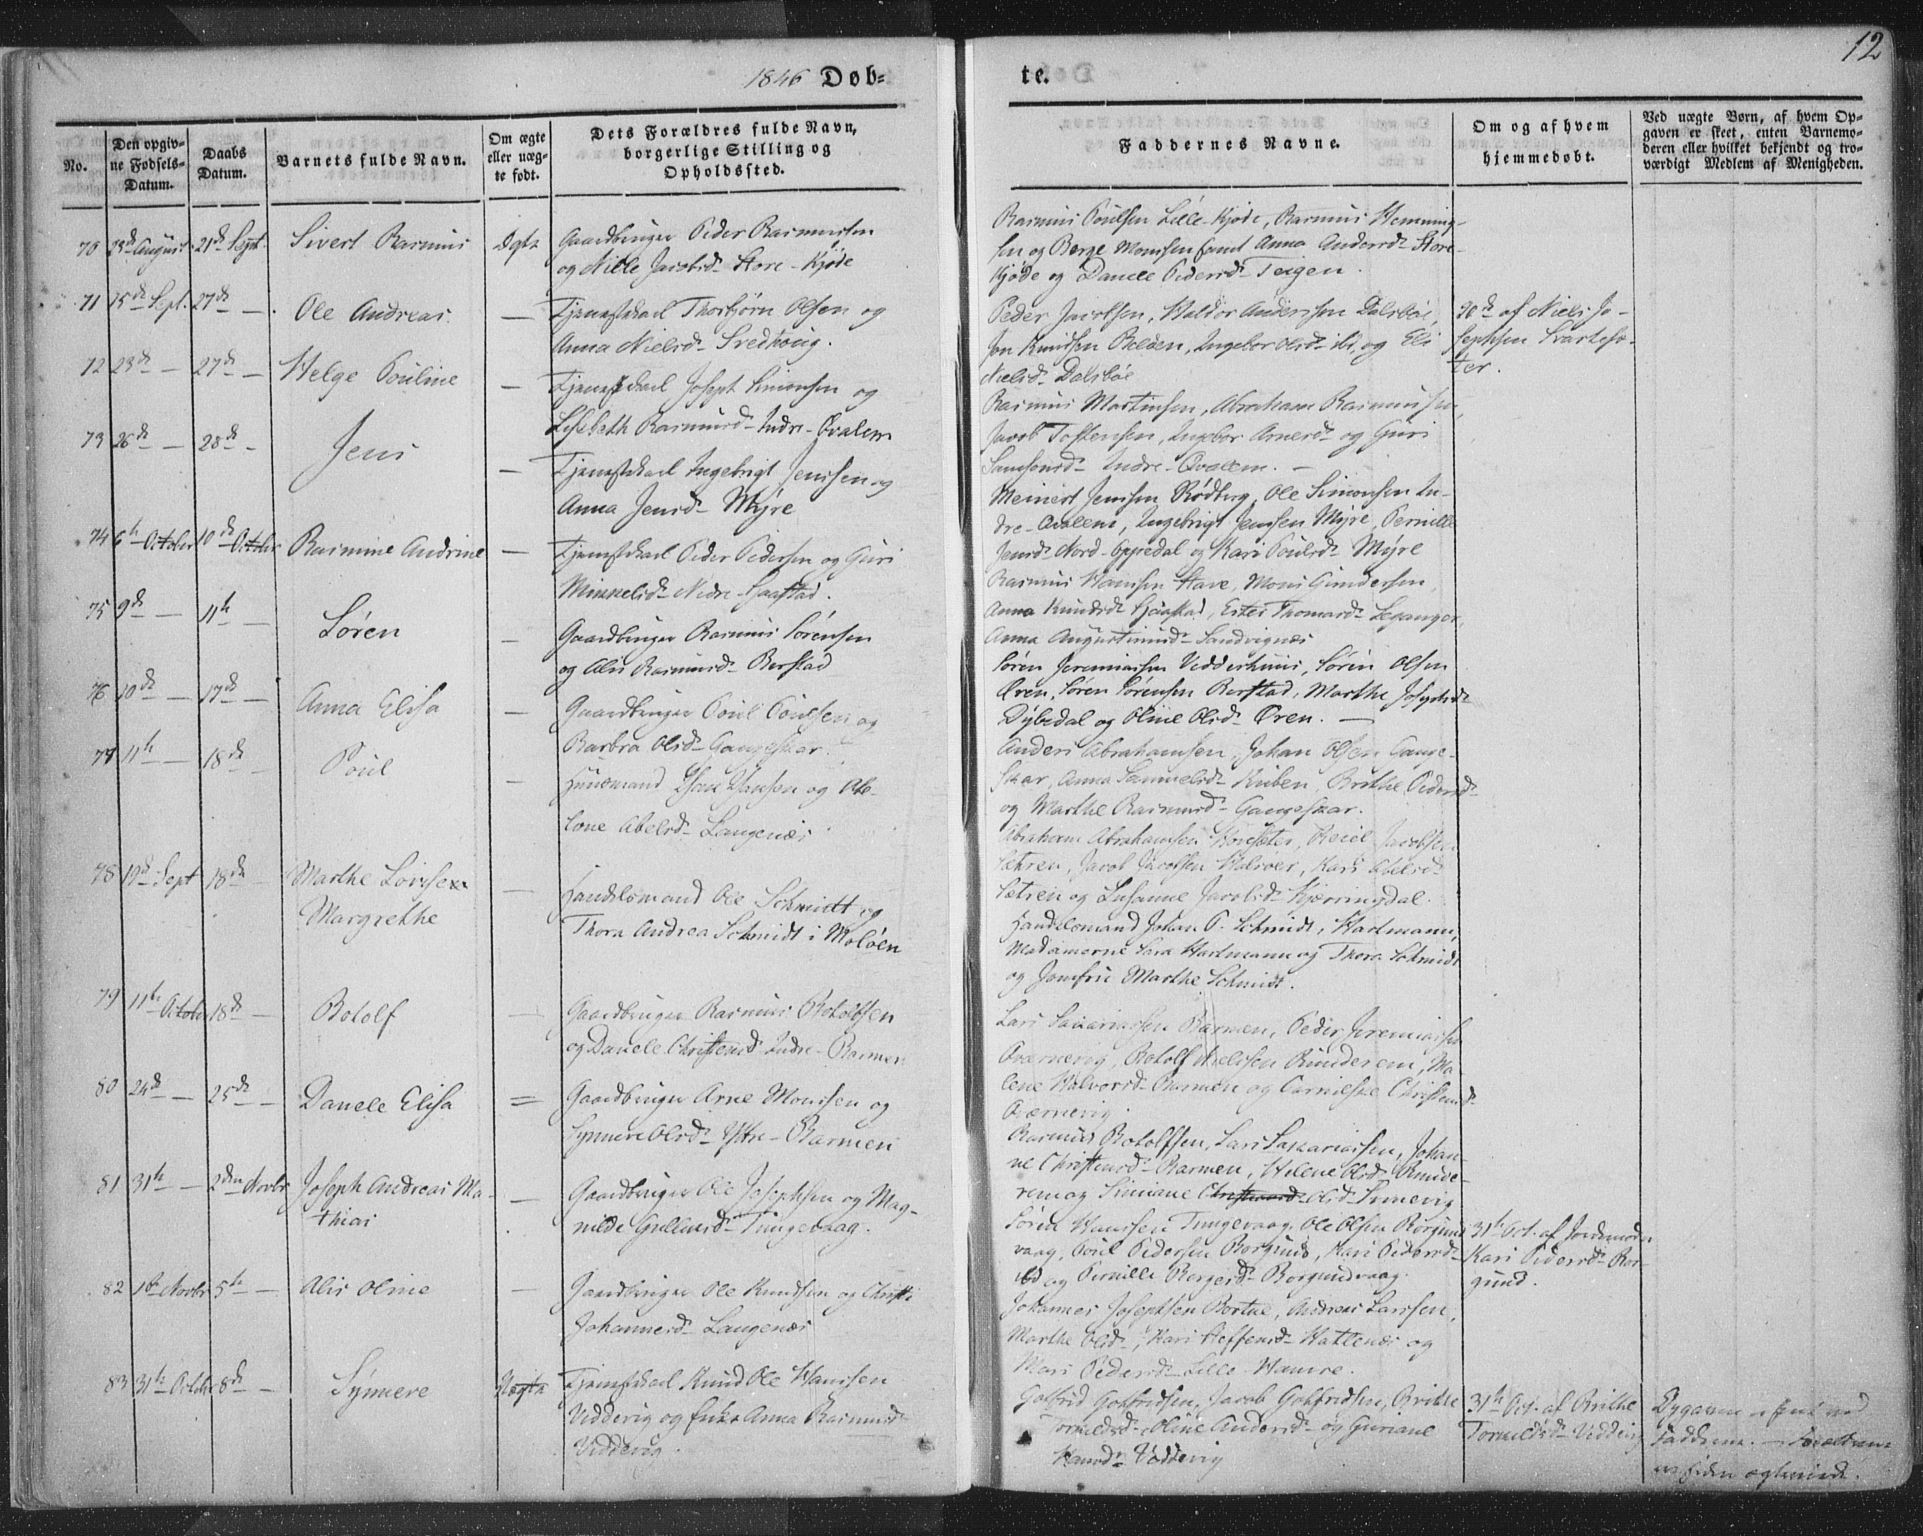 1846 Døb=
te.
12
No.
Den opgiv-
ne Fødsels-
Datum.
Daabs
Datum.
Barnets fulde Navn.
Om ægte
eller uæg-
te født.
Dets Forældres fulde Navn,
borgerlige Stilling og
Opholdssted.
Faddernes Navne.
Om og af hvem
hjemmedøbt.
Ved uægte Børn, af hvem Op-
gaven er skeet, enten Barnemo-
deren eller hvilket bekjendt og tro-
værdigt Medlem af Menigheden.
70 August 21de Sept. Sivert Rasmus Ægte Gaardbruger Peder Rasmussen
og Nille Jacobsd. Store-Kjøde
Rasmus Poulsen Lille-Kjøde, Rasmus Hemming-
sen og Børge Monssen samt Anna Andersd. Store
Kjøde og Danele Pedersd. Teigen.
71 15de Sept. 27de — Ole Andreas — Tjenestekarl Thorbjørn Olsen og
Anna Nielsd. Sredhoug.
Peder Jacobsen, Haldor Anderssen Dalsbøe,
Jon Knudsen Ingebor Olsd. ibd. og Eli
Nielsd. Dalsbøe
20de af Niels Jo-
sephsen Svartesø-
ter.
72 23de — 27de — Helge Pouline — Tjenestekarl Joseph Simonsen og
Lisebeth Rasmusd. Indre-Qvalem
Rasmus Martinsen, Abraham Rasmussen,
Jacob Tostensen, Ingebor Arnesd. og Guri
Samsonsd. Indre-Qvalem. —
73 26de — 28de — Jens — Tjenestekarl Ingebrigt Jenssen og
Anna Jensd. Myre
Meinert Jenssen Rødberg, Ole Simonsen In-
dre-Qvalem, Ingebrigt Jenssen Myre, Pernille
Jensd. Nord-Oppedal og Kari Poulsd. Myre
74 6te October 10de October Rasmine Andrine — Tjenestekarl Peder Pedersen og Guri
Mikkelsd. Nedre-Haastad.
Rasmus Hanssen Stave, Mons Gundersen,
Anna Knudsd. Haastad, Ester Thomasd. Leganger,
Anna Augustinusd. Sandvignæs
75 9de — 11te — Søren — Gaardbruger Rasmus Sørensen
og Alis Rasmusd. Berstad
Søren Jeremiassen Vedderhuus, Søren Olsen
Øren, Søren Sørensen Berstad, Marthe Josephsd.
Dybedal og Oline Olsd. Øren. —
76 10de — 17de — Anna Elisa — Gaardbruger Poul Poulsen og
Barbra Olsd. Gangeskar.
Anders Abrahamsen, Johan Olsen Gange-
skar, Anna Samuelsd. Kuben, Brithe Pedersd.
og Marthe Rasmusd. Gangeskar.
77 11te — 18de — Poul — Huusmand Hansen og Abe-
lone Abelsd. Langenæs
Abraham Abrahamsen Jacobsen
Sætren, Jacob Jacobsen Halvøer, Kari Abelsd.
Sætren og Susanne Jacobsd. Kjørringdal.
78 19de Sept 18de — Marthe Lovise
Margrethe — Handelsmand Ole Schmidt og
Thora Andrea Schmidt i Moløen
Handelsmand Johan P. Schmidt, Hartmann,
Madamerne Sara Hartmann og Thora Schmidt
og Jomfru Marthe Schmidt.
79 11te October 18de — Botolf — Gaardbruger Rasmus Botolfsen
og Danele Christensd. Indre-Barmen
Lars Sakariassen Barmen, Peder Jeremiassen
Qværnevig, Botolf Nielssen Runderem, Ma-
lene Halvorsd. Barmen og Carnilske Christensd.
Qværnevig.
80 24de — 25de — Danele Elisa = Gaardbruger Arne Monssen og
Synnere Olsd. Ytre-Barmen
Rasmus Botolfsen, Lars Sakariassen, Johan-
ne Christensd. Barmen, Helene Olsd. Runde-
rem og Simiane Olsd.
81 31te — 2den Novbr. Joseph Andreas Ma-
thias — Gaardbruger Ole Josephsen og Mag-
nilde Gullaksd. Tungevaag.
Søren Hanssen Tungevaag, Ole Olsen Borgund-
vaag, Poul Pedersen Borgund, Kari Pedersd.
ibd og Pernille Børgesd. Borgundvaag.
31te Oct. af Jordemoder
Kari Pedersd. Bor-
gund.
82 1ste Novbr 5te — Alis Oline — Gaardbruger Ole Knudsen og Christi
Johannesd. Langenæs
Johannes Josephsen Andreas Larssen,
Marthe Olsd., Kari Steffensd. Hatlenæs og
Mari Pedersd. Lille-Hamre.
83 31te Octobr 8de — Synnere Uægte Tjenestekarl Knud Ole Hanssen
Viddevig og Enke Anna Rasmusd.
Viddevig.
Gotfrid Gotfridsen, Jacob Gotfridsen, Brithe
Tormodsd., Oline Andersd. og Guriane
Hansd. Viddevig
31te Oct. af Brithe
Tormodsd. Viddevig
Opgaven
Fadderne. — Forældrene